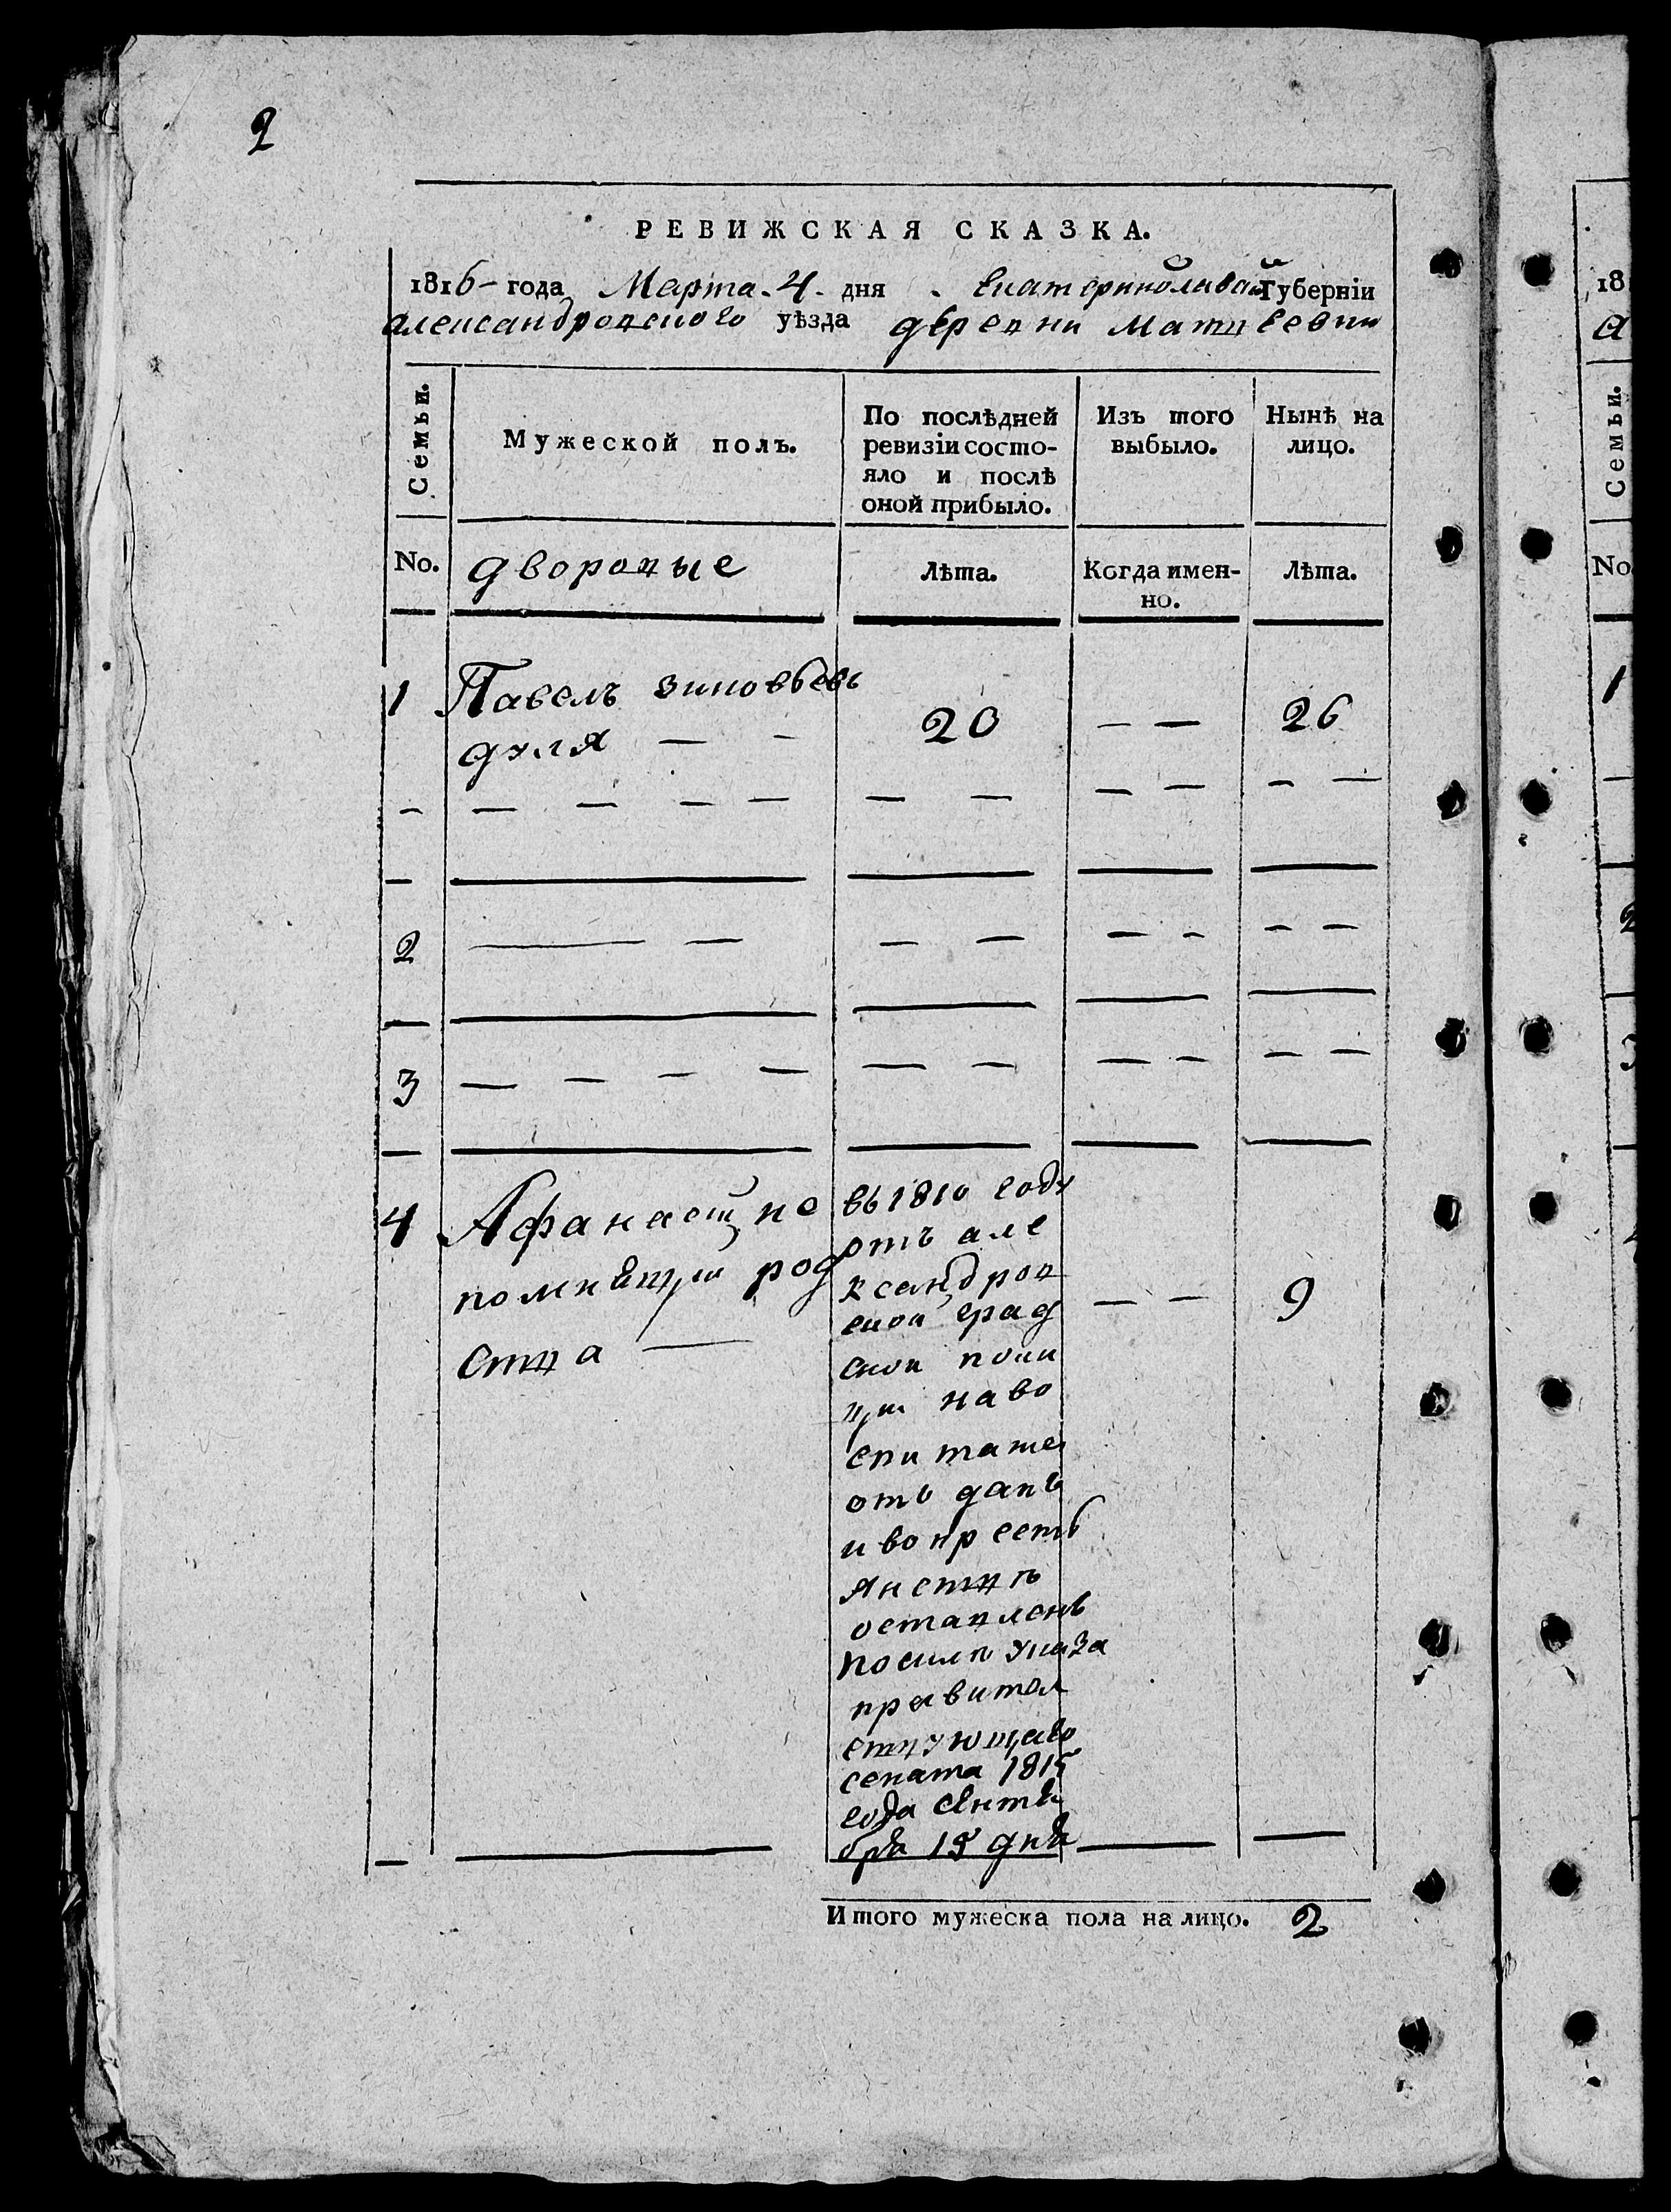 2
РЕВИЖСКАЯ СКАЗКА.
1816 года Марта 4 дня Екатеринославской Губерніи
александровского уѣзда деревни Матвеевки
Семьи.
Мужеской полъ.
По послѣдней ревизіи состо-
яло и послѣ
оной прибыло.
Изъ того
выбыло.
Нынѣ на
лицо.
No.
дворовые
Лѣта.
Когда имен-
но.
Лѣта.
1 Павелъ зиновьевъ
дуля — - 20 — — 26
2
3
4 Афанасей не
помнящи род
ства — 
въ 1810 году
отъ але
ксандров
ской град
ской поли
ции на во
спитание
отъ данъ
и во крестъ
янствѣ
оставленъ
по силѣ указа
правител
ствующаго
сената 1815
года сентя
бря 15 дня
— — 9
Итого мужеска пола на лицо. 2
18
а
Семьи.
No
1
2
3